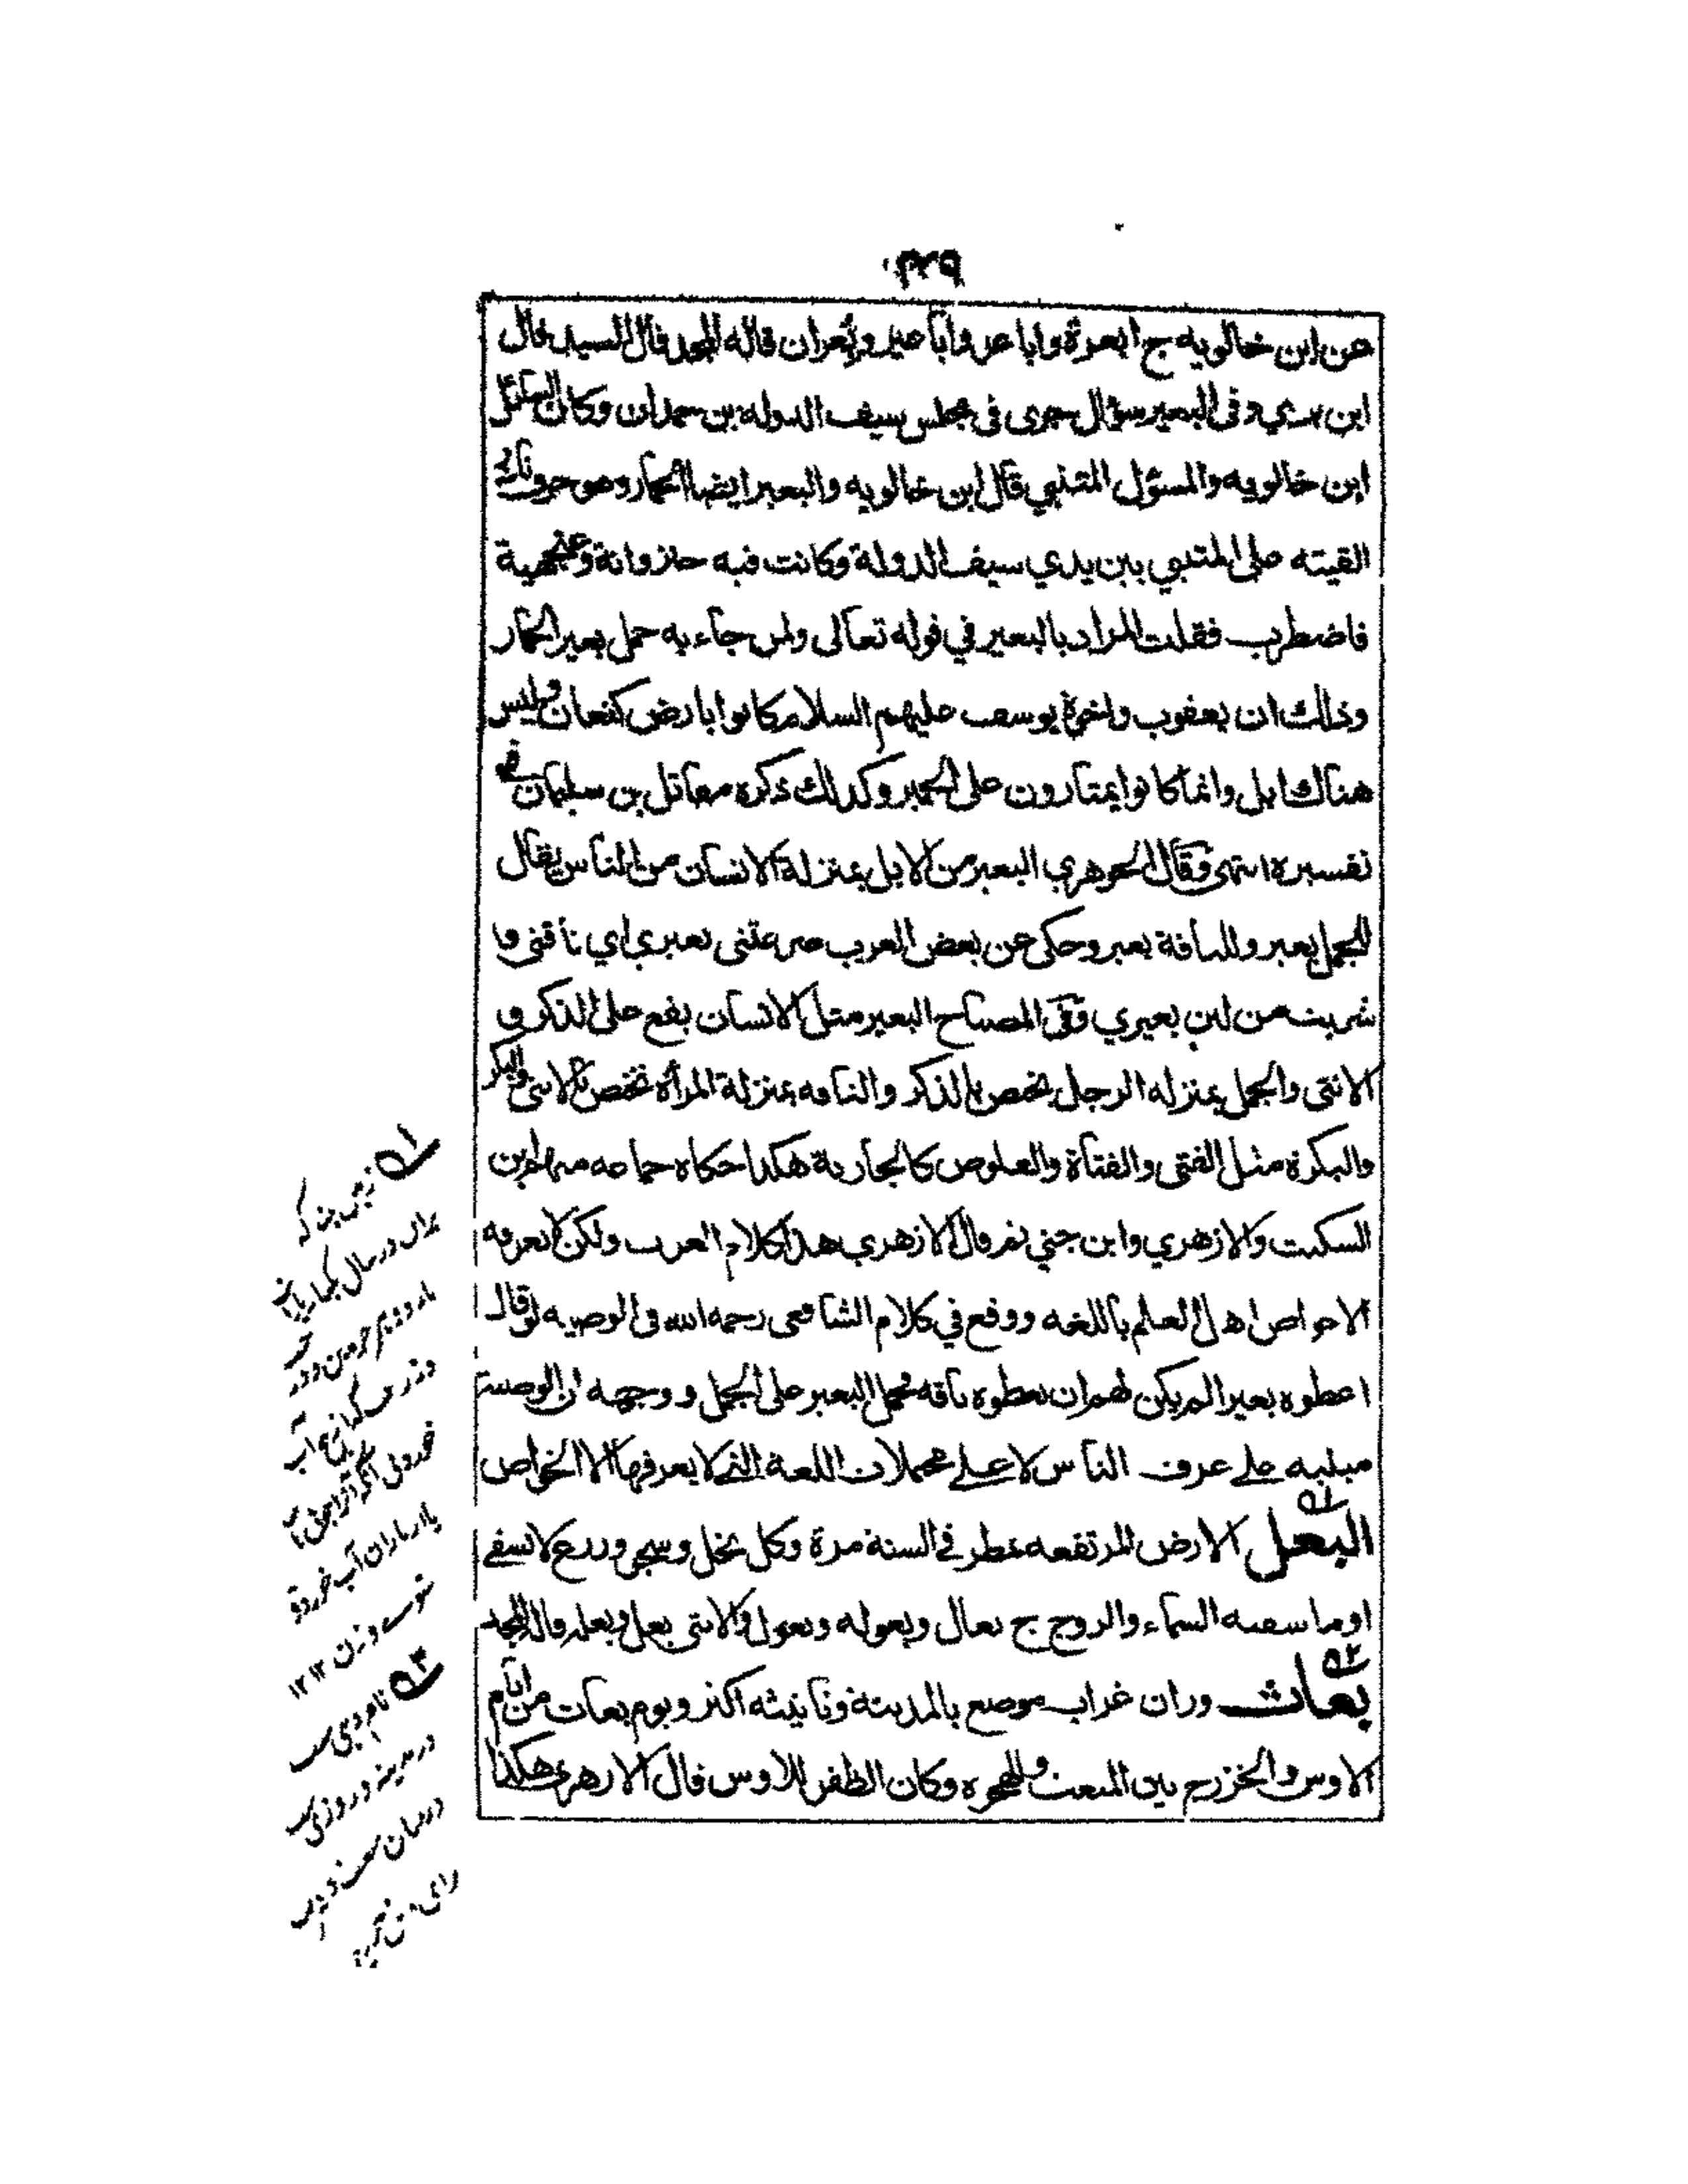 ٣٢٩
عن ابن خالويه ج ابعرة واباعر واباعير وبُعران قاله المجد قال السيد قال
ابن بري وفي البعير سؤال جرى في مجلس سيف الدولة بن حمدان وكان السائل
ابن خالويه والمسئول المتنبي قال ابن خالويه والبعير ايضا الحمار وهو حرف نادر
القيته على المتنبي بين يدي سيف الدولة وكانت فيه خنزوانة وعنجهية
فاضطرب فقلت المراد بالبعير في قوله تعالى ولمن جاء به حمل بعير الحمار
وذلك ان يعقوب واخوة يوسف عليهم السلام كانوا بارض كنعان وليس
هناك ابل وانما كانوا يمتارون على الحمير وكذلك ذكره مقاتل بن سليمان في
تفسيره انتهى وقال الجوهري البعير من الابل بمنزلة الانسان من الناس يقال
للجمل بعير وللناقة بعير وحكى عن بعض العرب صرعتني بعيري اي ناقتي وما
شربت من لبن بعيري وفي المصباح البعير مثل الانسان يقع على الذكر و
الانثى والجمل بمنزلة الرجل يختص بالذكر والناقة بمنزلة المرأة تختص بالانثى والبكر
والبكرة مثل الفتى والفتاة والقلوص كالجارية هكذا حكاه جماعة منهم ابن
السكيت والازهري وابن جني ثم قال الازهري هذا كلام العرب ولكن لا يعرفه
الا خواص اهل العلم باللغة ووقع في كلام الشافعي رحمه الله في الوصية لو قال
اعطوه بعيرا لم يكن لهم ان يعطوه ناقة فحمل البعير على الجمل ووجهه ان الوصية
مبنية على عرف الناس لا على محتملات اللغة التي لا يعرفها الا الخواص
البعل الارض المرتفعة تمطر في السنة مرة وكل نخل وشجر وزرع لا يسقى
او ما سقته السماء والزوج ج بعال وبعولة وبعول والانثى بعل وبعلة قاله المجد
بعاث وزان غراب موضع بالمدينة وتانيثه اكثر ويوم بعاث من ايام
الاوس والخزرج بين المبعث والهجرة وكان الظفر للاوس قال الازهري هكذا
۵۱ زمین بلند که
بران در سال یکبار باران
خورد
یا از باران آب خورد و
شوے و زن ۱۲ ۱۳
۵۲ نام
در مدینه و روزی
درمیان